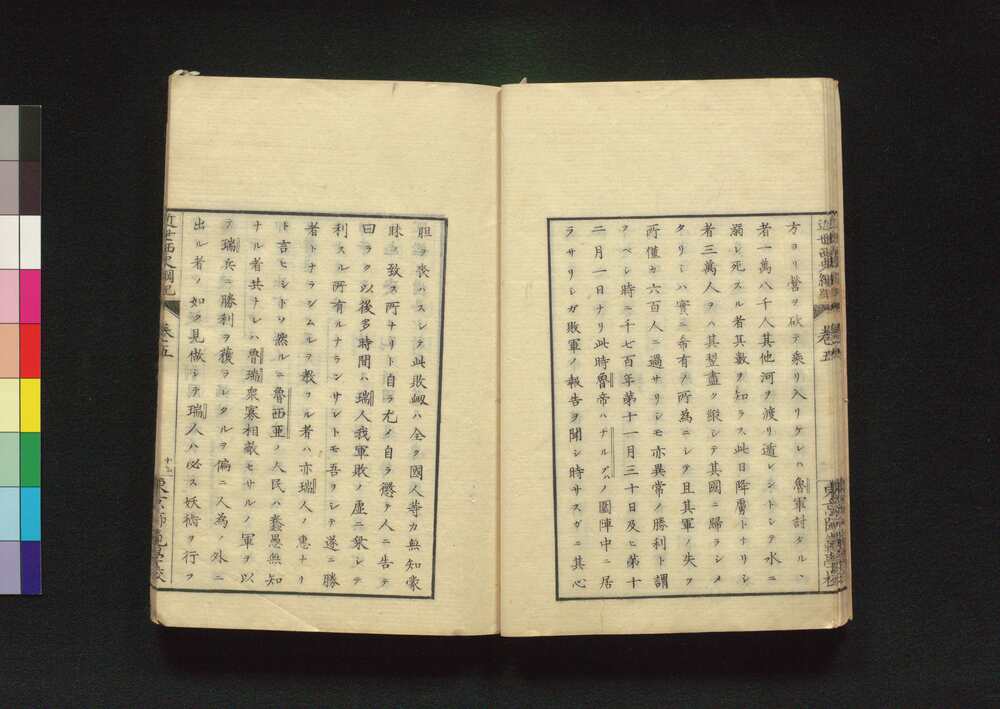 方ヨリ營ヲ破テ乘リ入リケレハ魯軍討タル丶
者一萬八千人其他河ヲ渡リ遁レントシテ水ニ
溺レ死スル者其數ヲ知ラス此日降虜トナリシ
者三萬人ヲハ其翌盡ク縱シテ其國ニ歸ラシメ
タリシハ實ニ希有ノ所為ニシテ且其軍ノ失フ
所僅カ六百人ニ過サリシモ亦異常ノ勝利ト謂
フベシ時ニ千七百年第十一月三十日及ヒ第十
二月一日ナリ此時魯帝ハナルヴハノ圍陣中ニ居
ラサリシガ敗軍ノ報告ヲ聞シ時サスガニ其心
胆ヲ喪ハスシテ此敗衂ハ全ク國人等カ無知蒙
昧ニ致ス所ナリト自ラ尤メ自ラ懲テ人ニ告テ
曰ラク以後多時間ハ瑞人我軍敗ノ虛ニ乘シテ
利スル所有ルナランサレトモ吾ヲシテ遂ニ勝
者トナラシムルヲ教フル者ハ亦瑞人ノ惠ナリ
ト言ヒシトソ然ルニ魯西亜ノ人民ハ蠢愚無知
ナル者共ナレハ魯瑞衆寡相敵セサルノ軍ヲ以
テ瑞兵ニ勝利ヲ獲ラレタルヲ偏ニ人為ノ外ニ
出ル者ノ如ク見做シテ瑞人ハ必ス妖術ヲ行フ
近世西史綱紀
卷五
東京師範學校